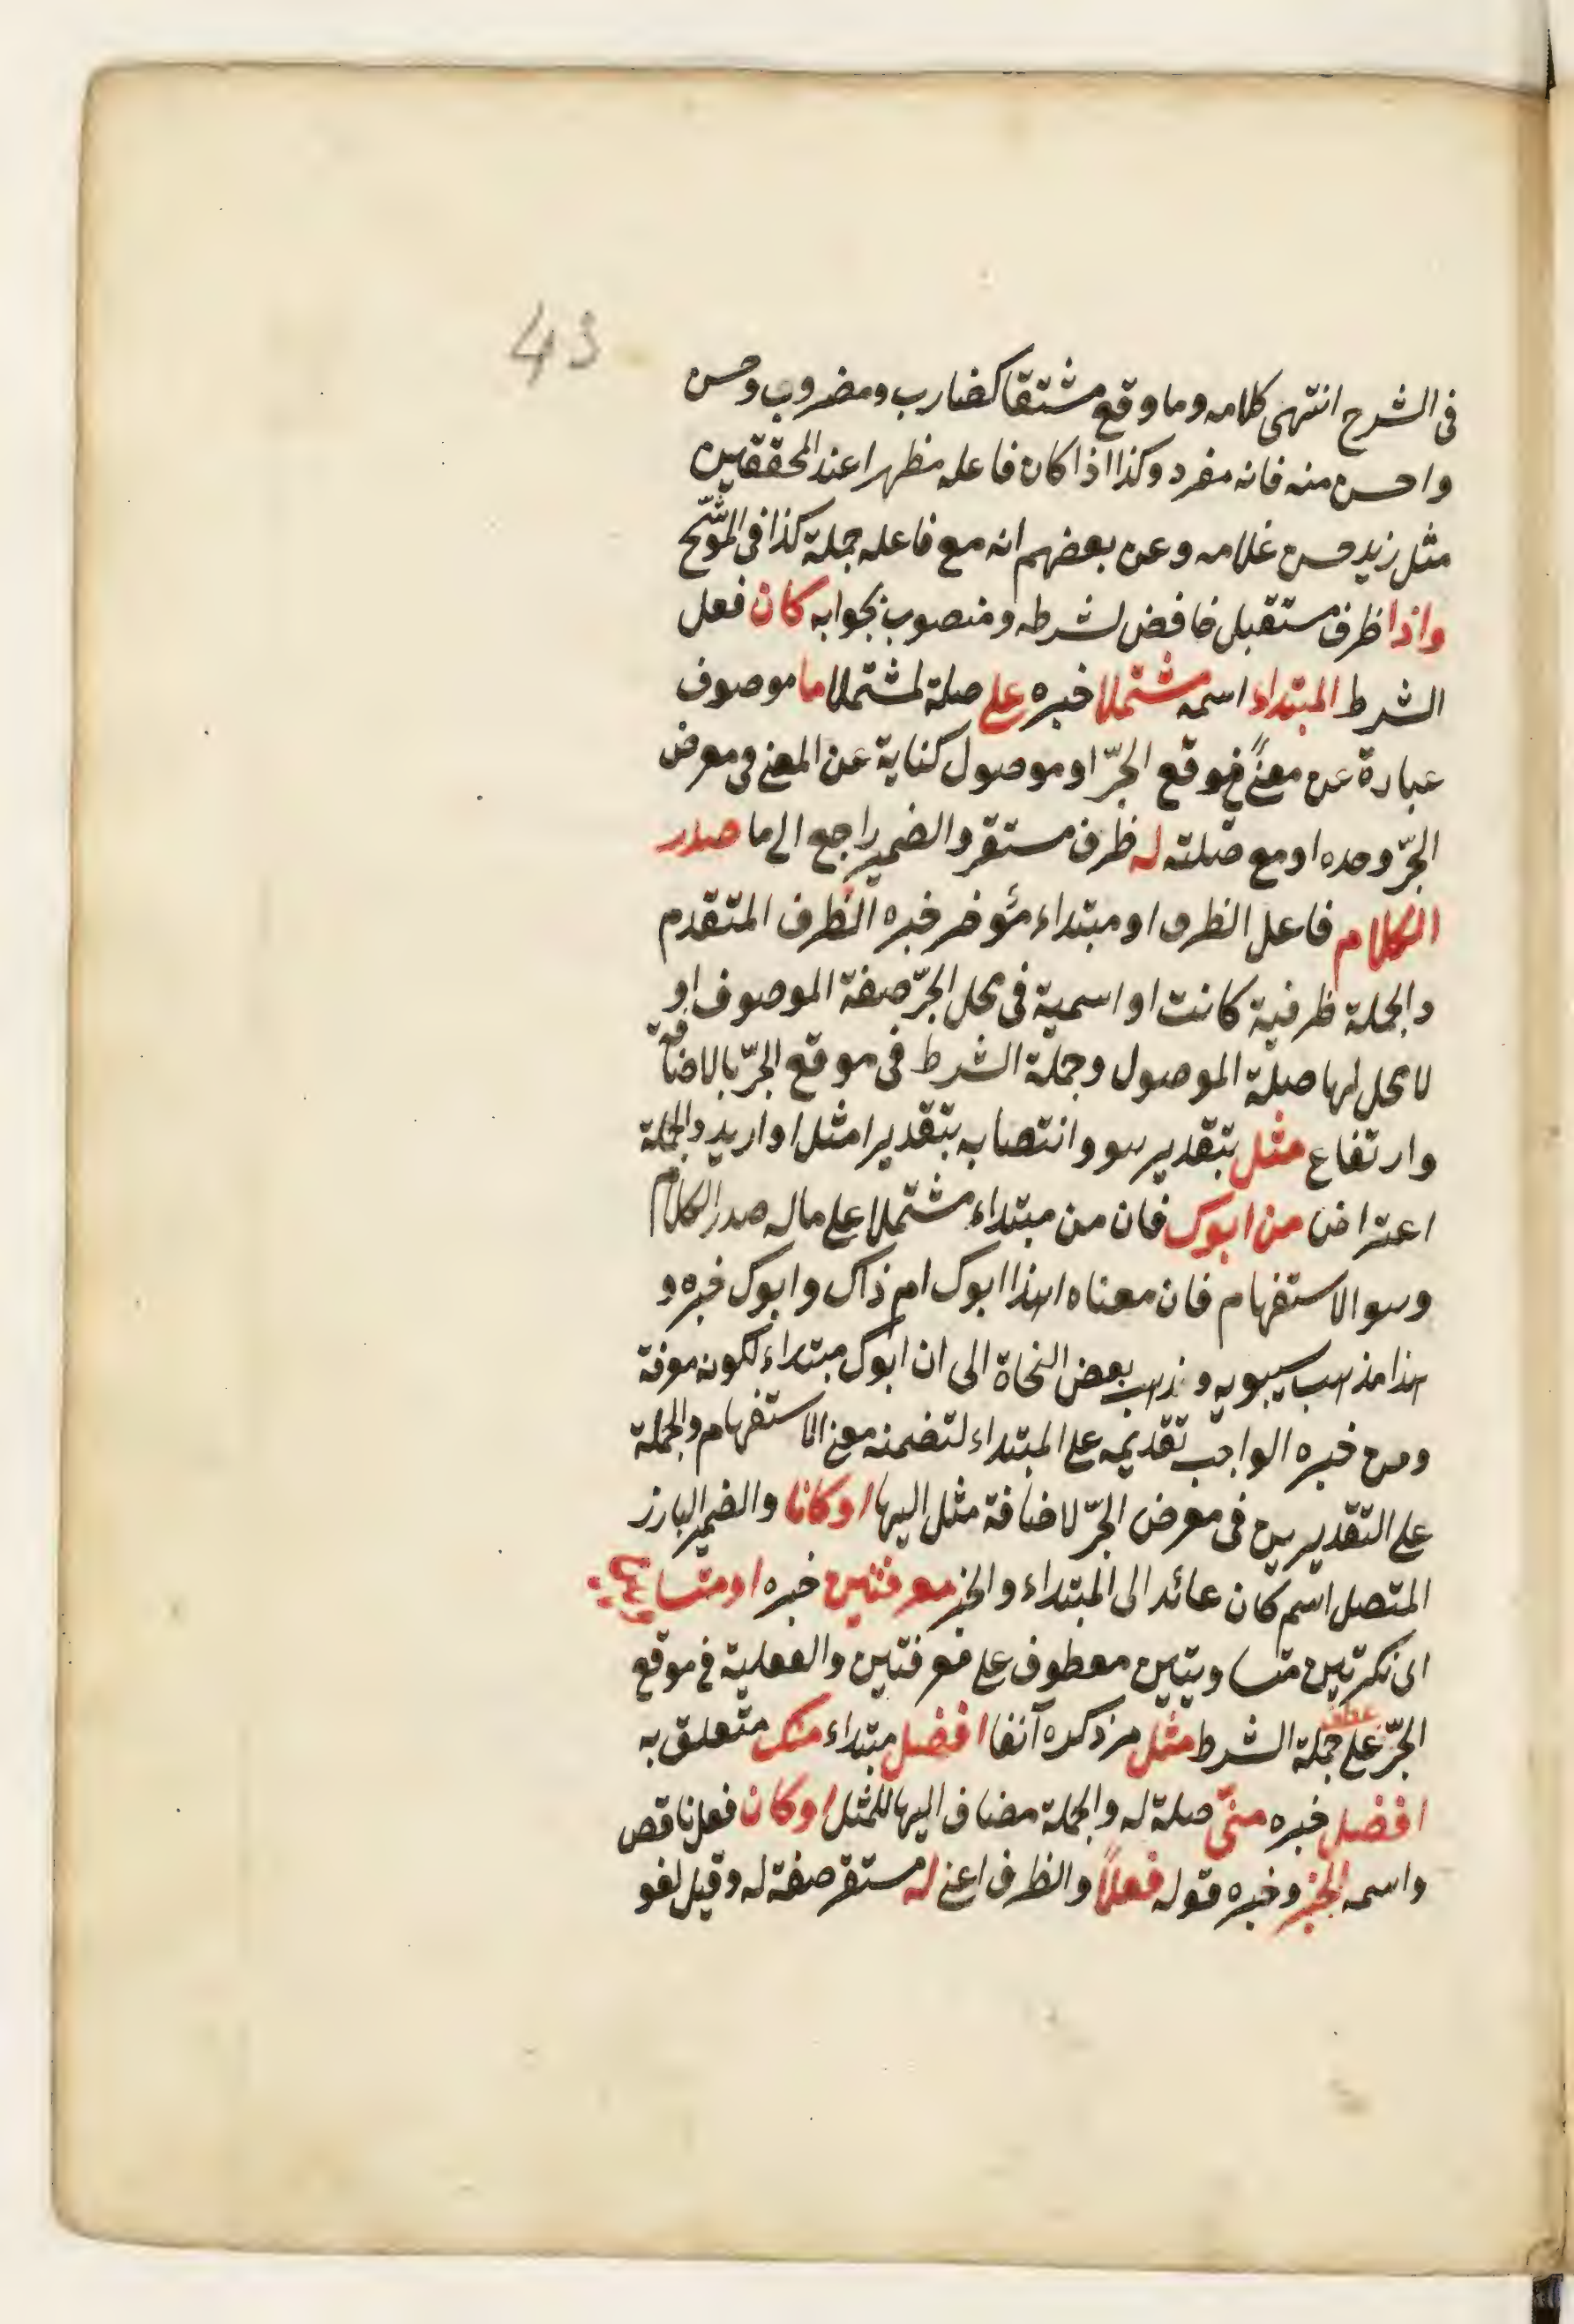 43
فى الشرح انتهى كلامه وما وقع مشتقا كضارب ومضروب وحسن
واحسن منه فانه مفرد وكذا اذا كان فاعله مظهرا عند المحققين
مثل زيد حسن غلامه وعن بعضهم انه مع فاعله جملة كذا فى الموشّح
واذا ظرف مستقبل خافض لشرطه ومنصوب بجوابه كان فعل
الشرط المبتداء اسمه مشتملا خبره على صلة لمشتملا ما موصوف
عبارة عن معنًى فى موقع الجرّ او موصول كناية عن المعنى فى معرض
الجرّ وحده او مع صلته له ظرف مستقر والضمير راجع الى ما صدر
الكلام فاعل الظرف او مبتداء مؤخر خبره الظرف المتقدم
والجملة ظرفية كانت او اسمية فى محل الجرّ صفة الموصوف او
لا محل لها صلة الموصول وجملة الشرط فى موقع الجرّ بالاضافة
وارتفاع مثل بتقدير هو وانتصابه بتقدير امثل او اريد والجملة
اعتراض من ابوك فان من مبتداء مشتملا على ماله صدر الكلام
وهو الاستفهام فان معناه اهذا ابوك ام ذاك وابوك خبره و
هذا مذهب سيبويه وذهب بعض النحاة الى ان ابوك مبتداء لكونه معرفة
ومن خبره الواجب تقديمه على المبتداء لتضمنه معنى الاستفهام والجملة
على التقديرين فى معرض الجرّ لاضافة مثل اليها او كانا والضمير البارز
المتصل اسم كان عائد الى المبتداء والخبر معرفتين خبره او متساويين
اى نكرتين متساويتين معطوف على معرفتين والفعلية فى موقع
الجرّ عطف على جملة الشرط مثل مر ذكره آنفا افضل مبتداء منك متعلق به
افضل خبره منّى صلة له والجملة مضاف اليها للمثل او كان فعل ناقص
واسمه الخبر وخبره قوله فعلًا والظرف اعنى له مستقر صفة له وقيل لغو